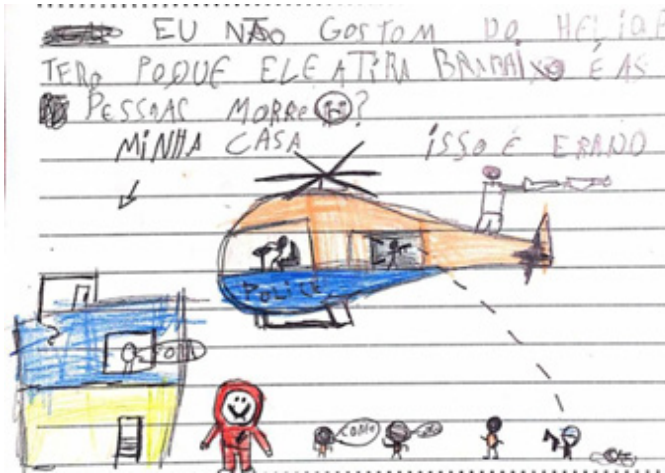 EU NÃO GOSTOM DO HELIQE
TERO POQUE ELE ATIRA BRAPAIXO É AS
PESSOAS MORRE?
MINHA CASA ISSO É ERADO
POLICE